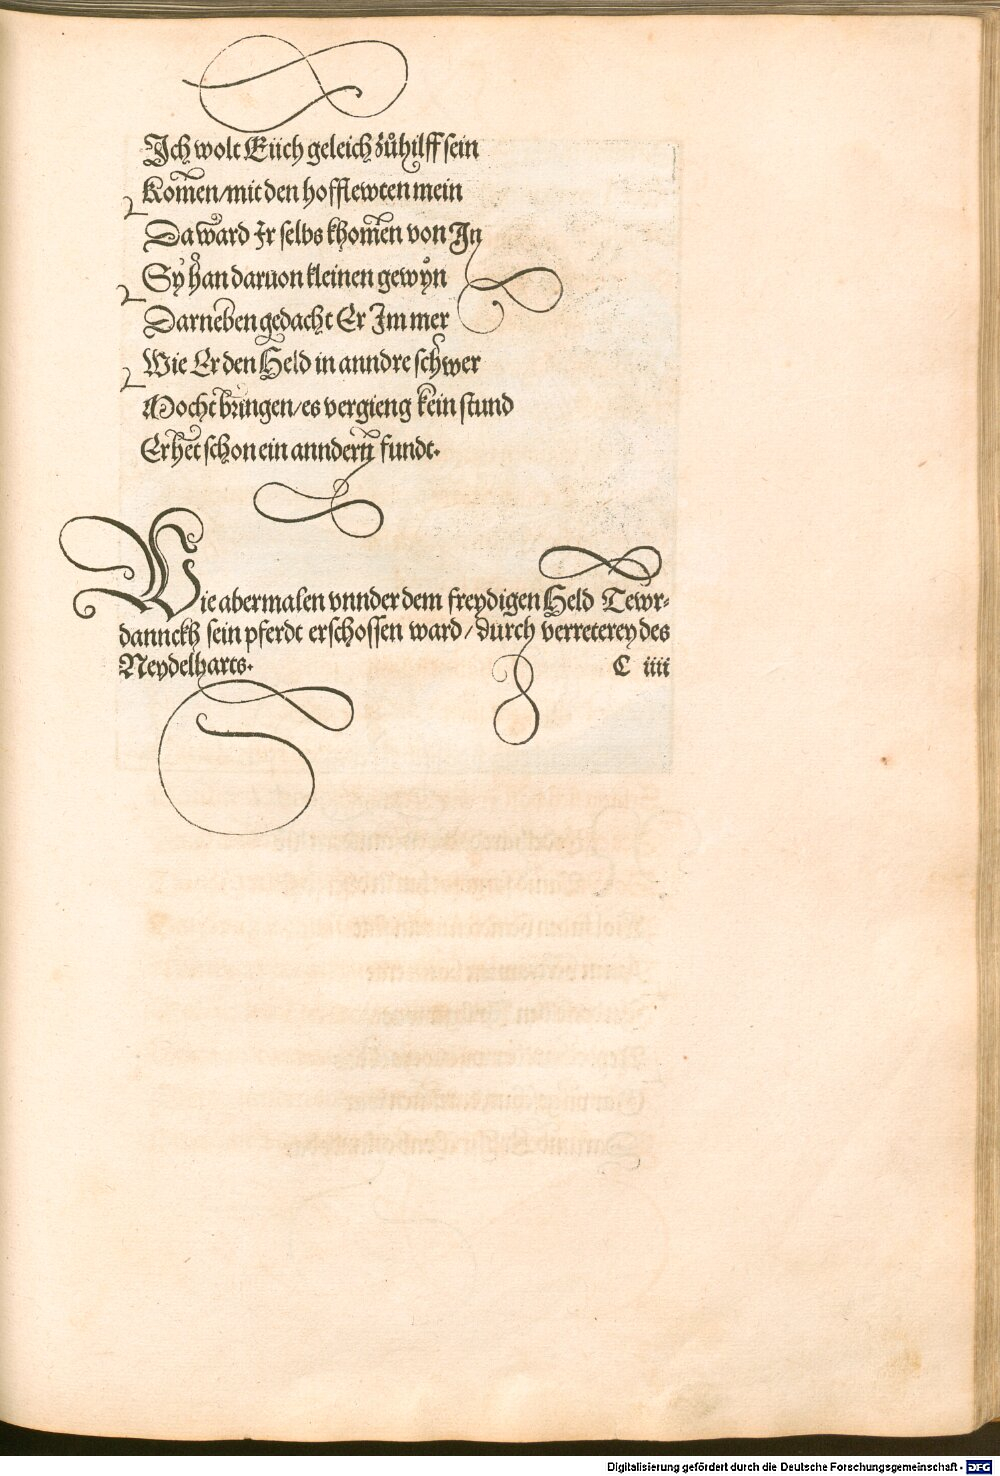 Ich wolt Eüch geleich zůhilff sein
Komen̄/mit den hofflewten mein
Da ward Ir selbs khomen̄ von In
Sy han daruon kleinen gewyn
Darneben gedacht Er Immer
Wie Er den Held in anndre schwer
Mocht bringen/es vergieng kein stund
Er het schon ein anndern fundt.
Wie abermalen vnnder dem freydigen Held Tewr⸗
dannckh sein pferdt erschossen ward/durch verreterey des
Neydelharts. C iiii
Digitalisierung gefördert durch die Deutsche Forschungsgemeinschaft - DFG